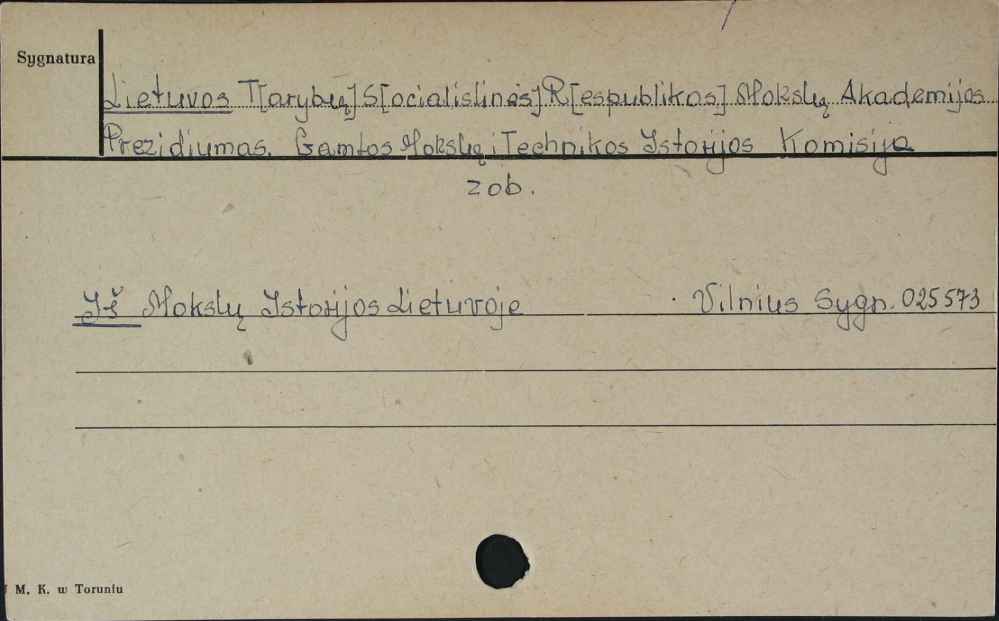 Sygnatura
Lietuvos T[arybų] S[ocialistinės] R[espublikos] Mokslų Akademijos
Prezidiumas. Gamtos Mokslų i Technikos Istorijos Komisija
zob.
Iš Mokslų Istorijos Lietuvoje . Vilnius Sygn. 025573
M. K. w Toruniu